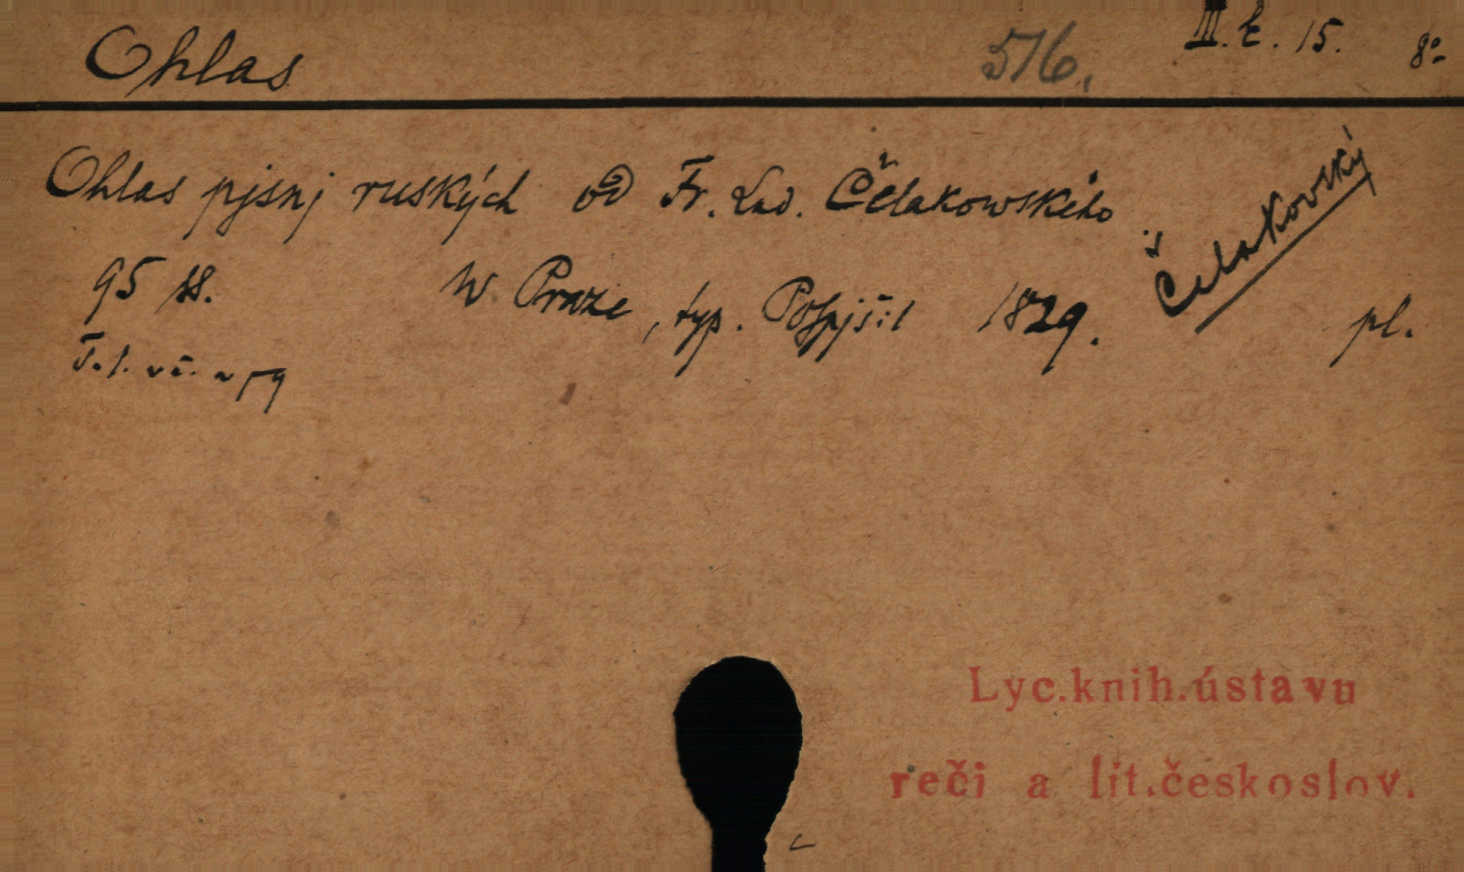 Ohlas 516. III. t. 15. 8°
Ohlas pjsnj ruských od Fr. Lad. Čelakowského
Čelakovský
95 ss. W Praze, typ. Pospjšil 1829. pl.
Lyc.knih.ústavu
reči a lit.českoslov.